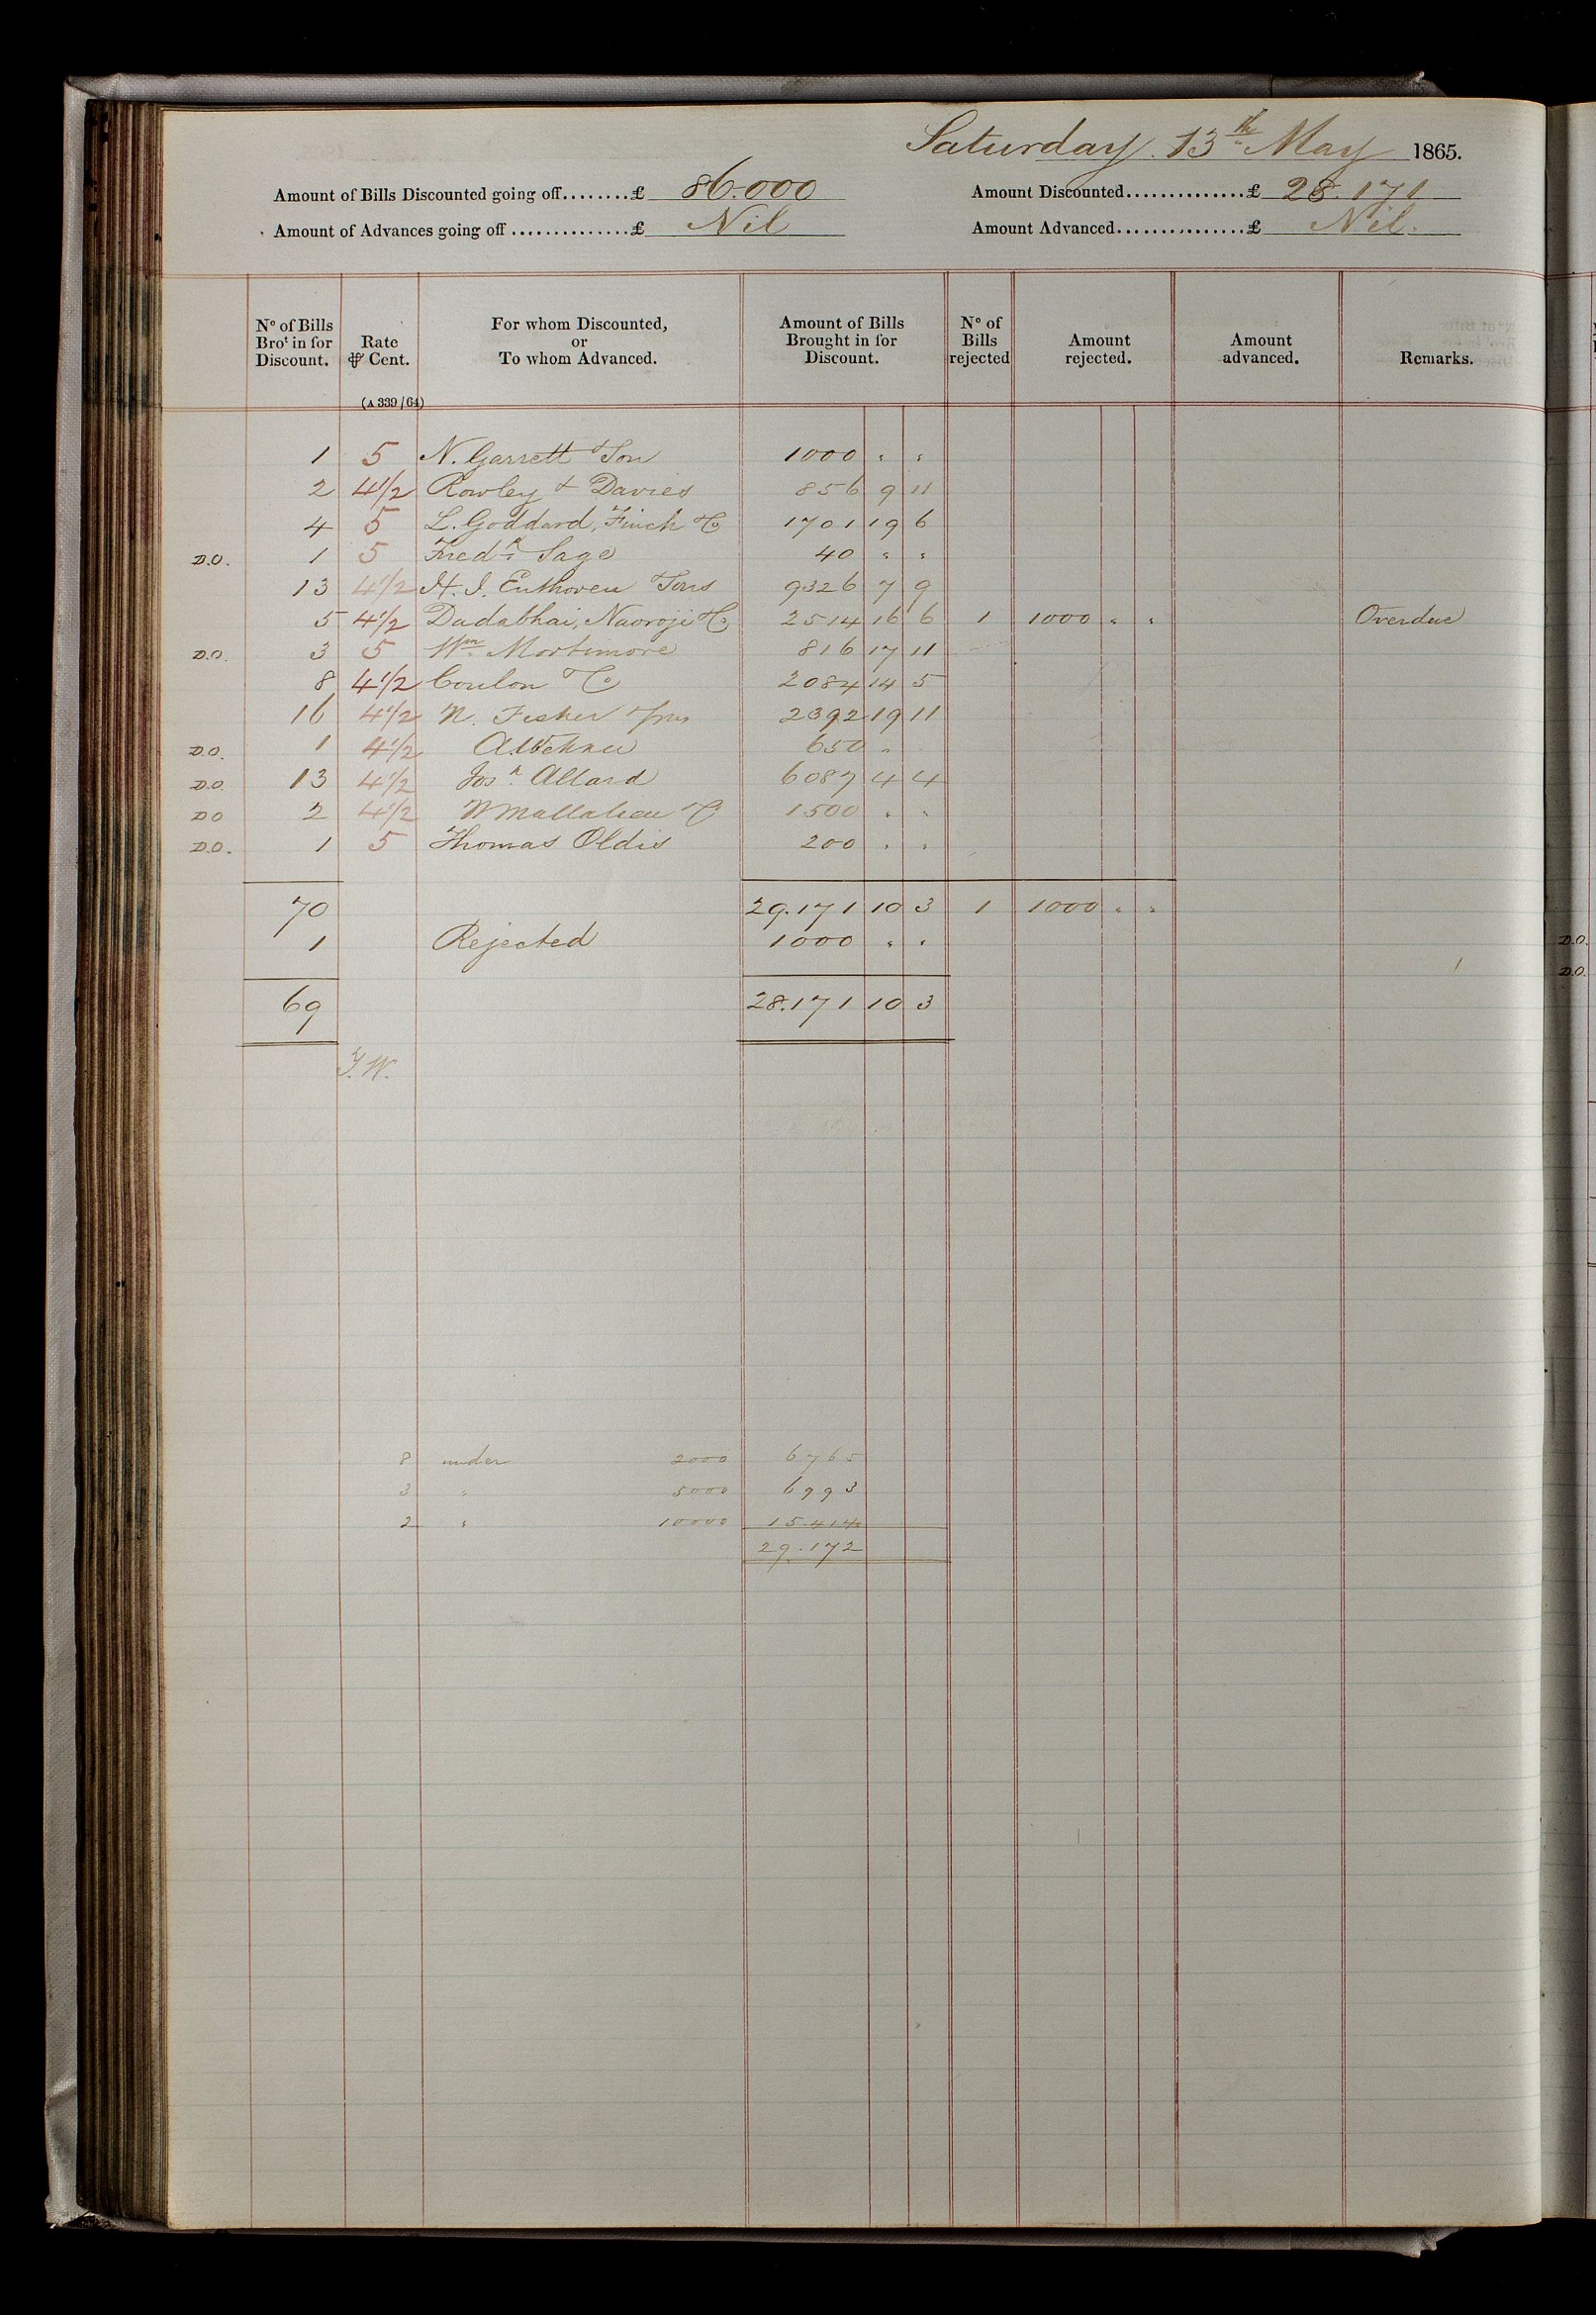 Saturday 13th May 1865.
Amount of Bills Discounted going off........£ 86.000 Amount Discounted..............£ 28.171
Amount of Advances going off..............£ Nil Amount Advanced...............£ Nil.
No of Bills Brot in for Discount. Rate ⅌ Cent. For whom Discounted, or To whom Advanced. Amount of Bills Brought in for Discount. No of Bills rejected Amount rejected. Amount advanced. Remarks.
(A 339/64)
1 5 N. Garrett & Son 1000 " "
2 4½ Rowley & Davies 856 9 11
4 5 L. Goddard, Finch & Co 1701 19 6
D.O. 1 5 Fredk Sage 40 " "
13 4½ H. J. Enthoven & Sons 9326 7 9
5 4½ Dadabhai, Naoroji & Co 2514 16 6 1 1000 " " Overdue
D.O. 3 5 Wm Mortimore 816 17 11
8 4½ Coulon & Co 2084 14 5
16 4½ N. Fisher & Sons 2392 19 11
D.O. 1 4½ 650 "
D.O. 13 4½ Josh Allard 6087 4 4
D.O 2 4½ W Mallalieu & Co 1500 " "
D.O. 1 5 Thomas Oldis 200 " "
70 29.171 10 3 1 1000 " "
1 Rejected 1000 " "
69 28.171 10 3
8 under 2000 6765
3 " 5000 6993
2 " 10000 15.414
29.172
D.O.
D.O.